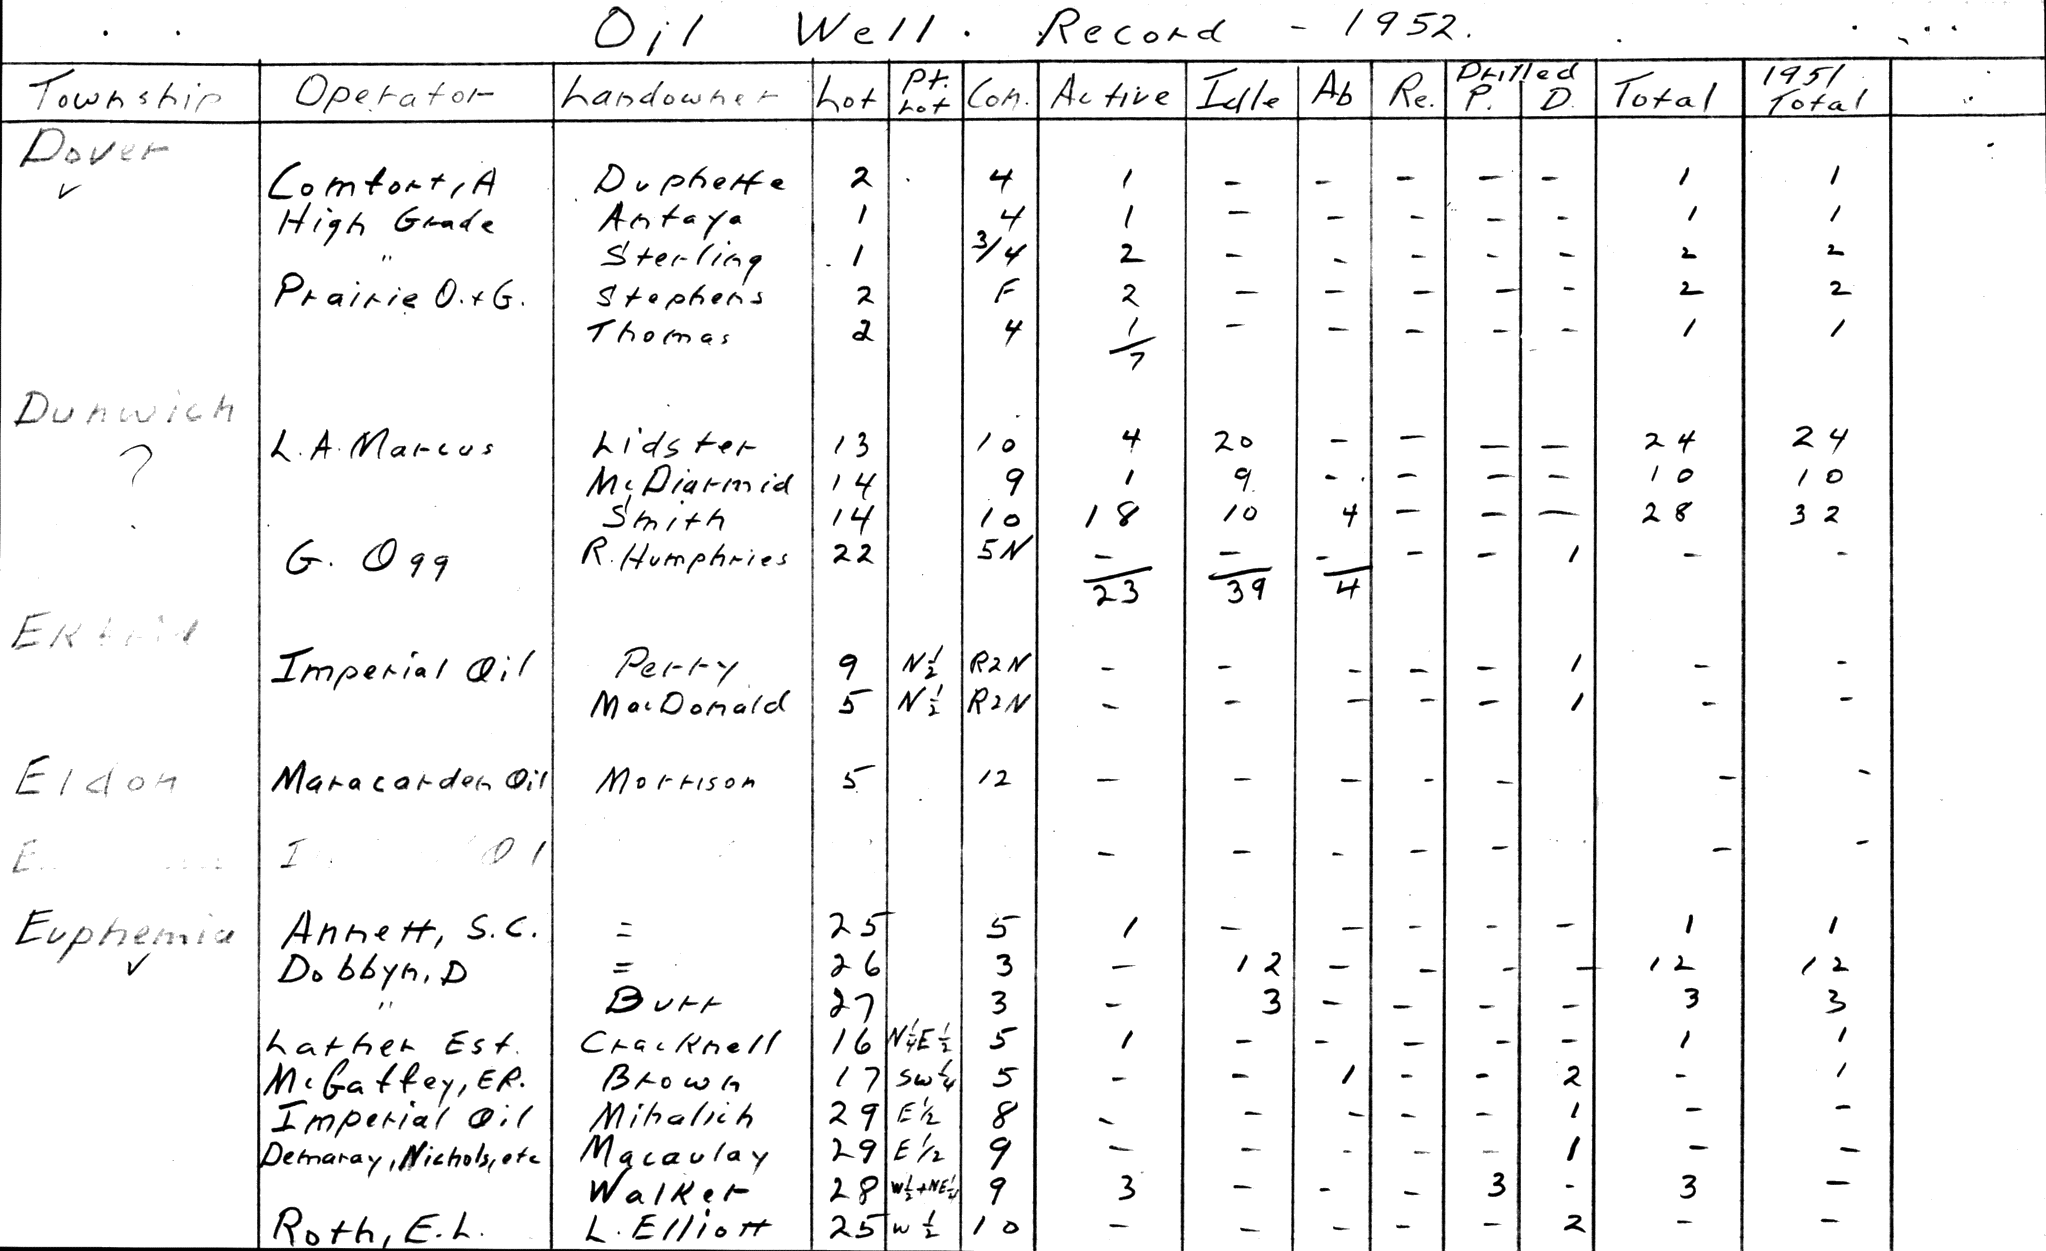 Oil Well. Record - 1952.
Township Operator Landowner Lot Pt. Lot Con. Active Idle Ab Re. Drilled P. D. Total 1951 Total
Dover
Comfort, A Duphette 2 4 1 - - - - - 1 1
High Grade Antaya 1 4 1 - - - - - 1 1
" Sterling 1 3/4 2 - - - - - 2 2
Prairie O.+G. Stephens 2 F 2 - - - - - 2 2
Thomas 2 4 1 - - - - - 1 1
7
Dunwich
L.A. Marcus Lidster 13 10 4 20 - - - - 24 24
?
McDiarmid 14 9 1 9 - - - - 10 10
Smith 14 10 18 10 4 - - - 28 32
G. Ogg R. Humphries 22 5N - - - - - 1 - -
23 39 4
Imperial Oil Perry 9 N½ R2N - - - - - 1 - -
MacDonald 5 N½ R2N - - - - - 1 - -
Eldon Maracarden Oil Morrison 5 12 - - - - - - -
- - - - - - -
Euphemia Annett, S.C. = 25 5 1 - - - - - 1 1
Dobbyn, D = 26 3 - 12 - - - - 12 12
" Burr 27 3 - 3 - - - - 3 3
Lather Est. Cracknell 16 N¼E½ 5 1 - - - - - 1 1
McGaffey, ER. Brown 17 SW¼ 5 - - 1 - - 2 - 1
Imperial Oil Mihalich 29 E½ 8 - - - - - 1 - -
Demaray, Nichols, etc Macaulay 29 E½ 9 - - - - - 1 - -
Walker 28 W½+NE¼ 9 3 - - - 3 - 3 -
Roth, E.L. L. Elliott 25 W½ 10 - - - - - 2 - -